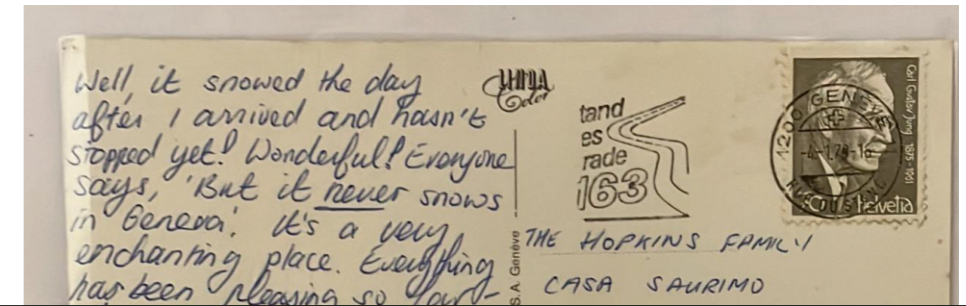 Well, it snowed the day
after I arrived and hasn't
stopped yet! Wonderful! Everyone
says, 'But it never snows
in Geneva'. It's a very
enchanting place. Everything
has been pleasing so far-
Color
tand
es
rade
163
1200 GENEVE
Carl Gustav Jung 1875-1961
helvetia
S.A. Genève
THE HOPKINS FAMILY
CASA SAURIMO